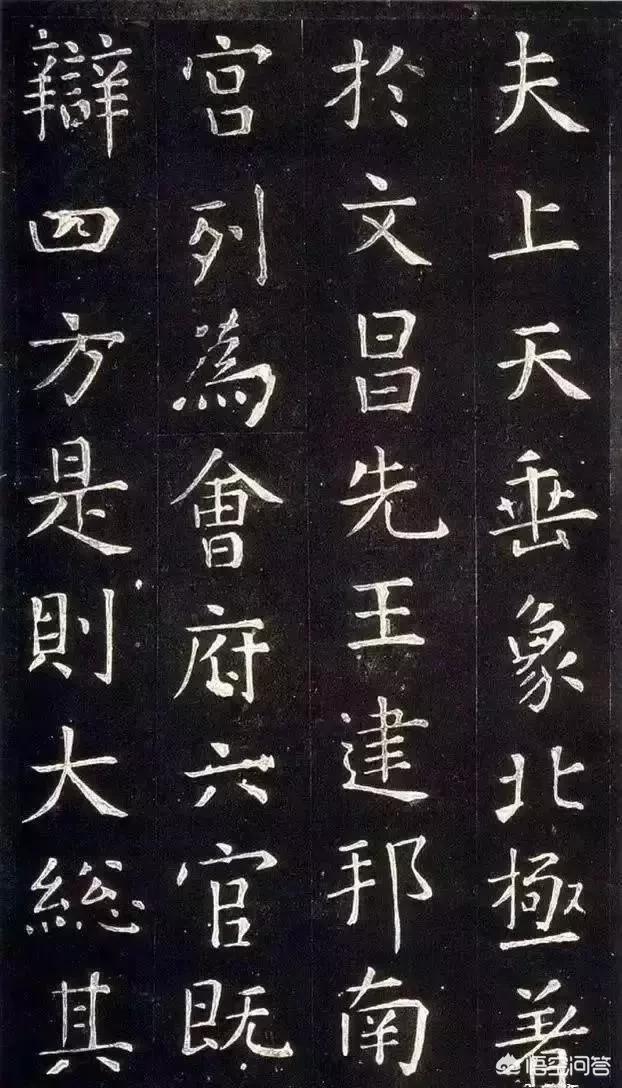 夫上天垂象北極著
於文昌先王建邦南
宮列為會府六官既
辯四方是則大總其
悟空问答